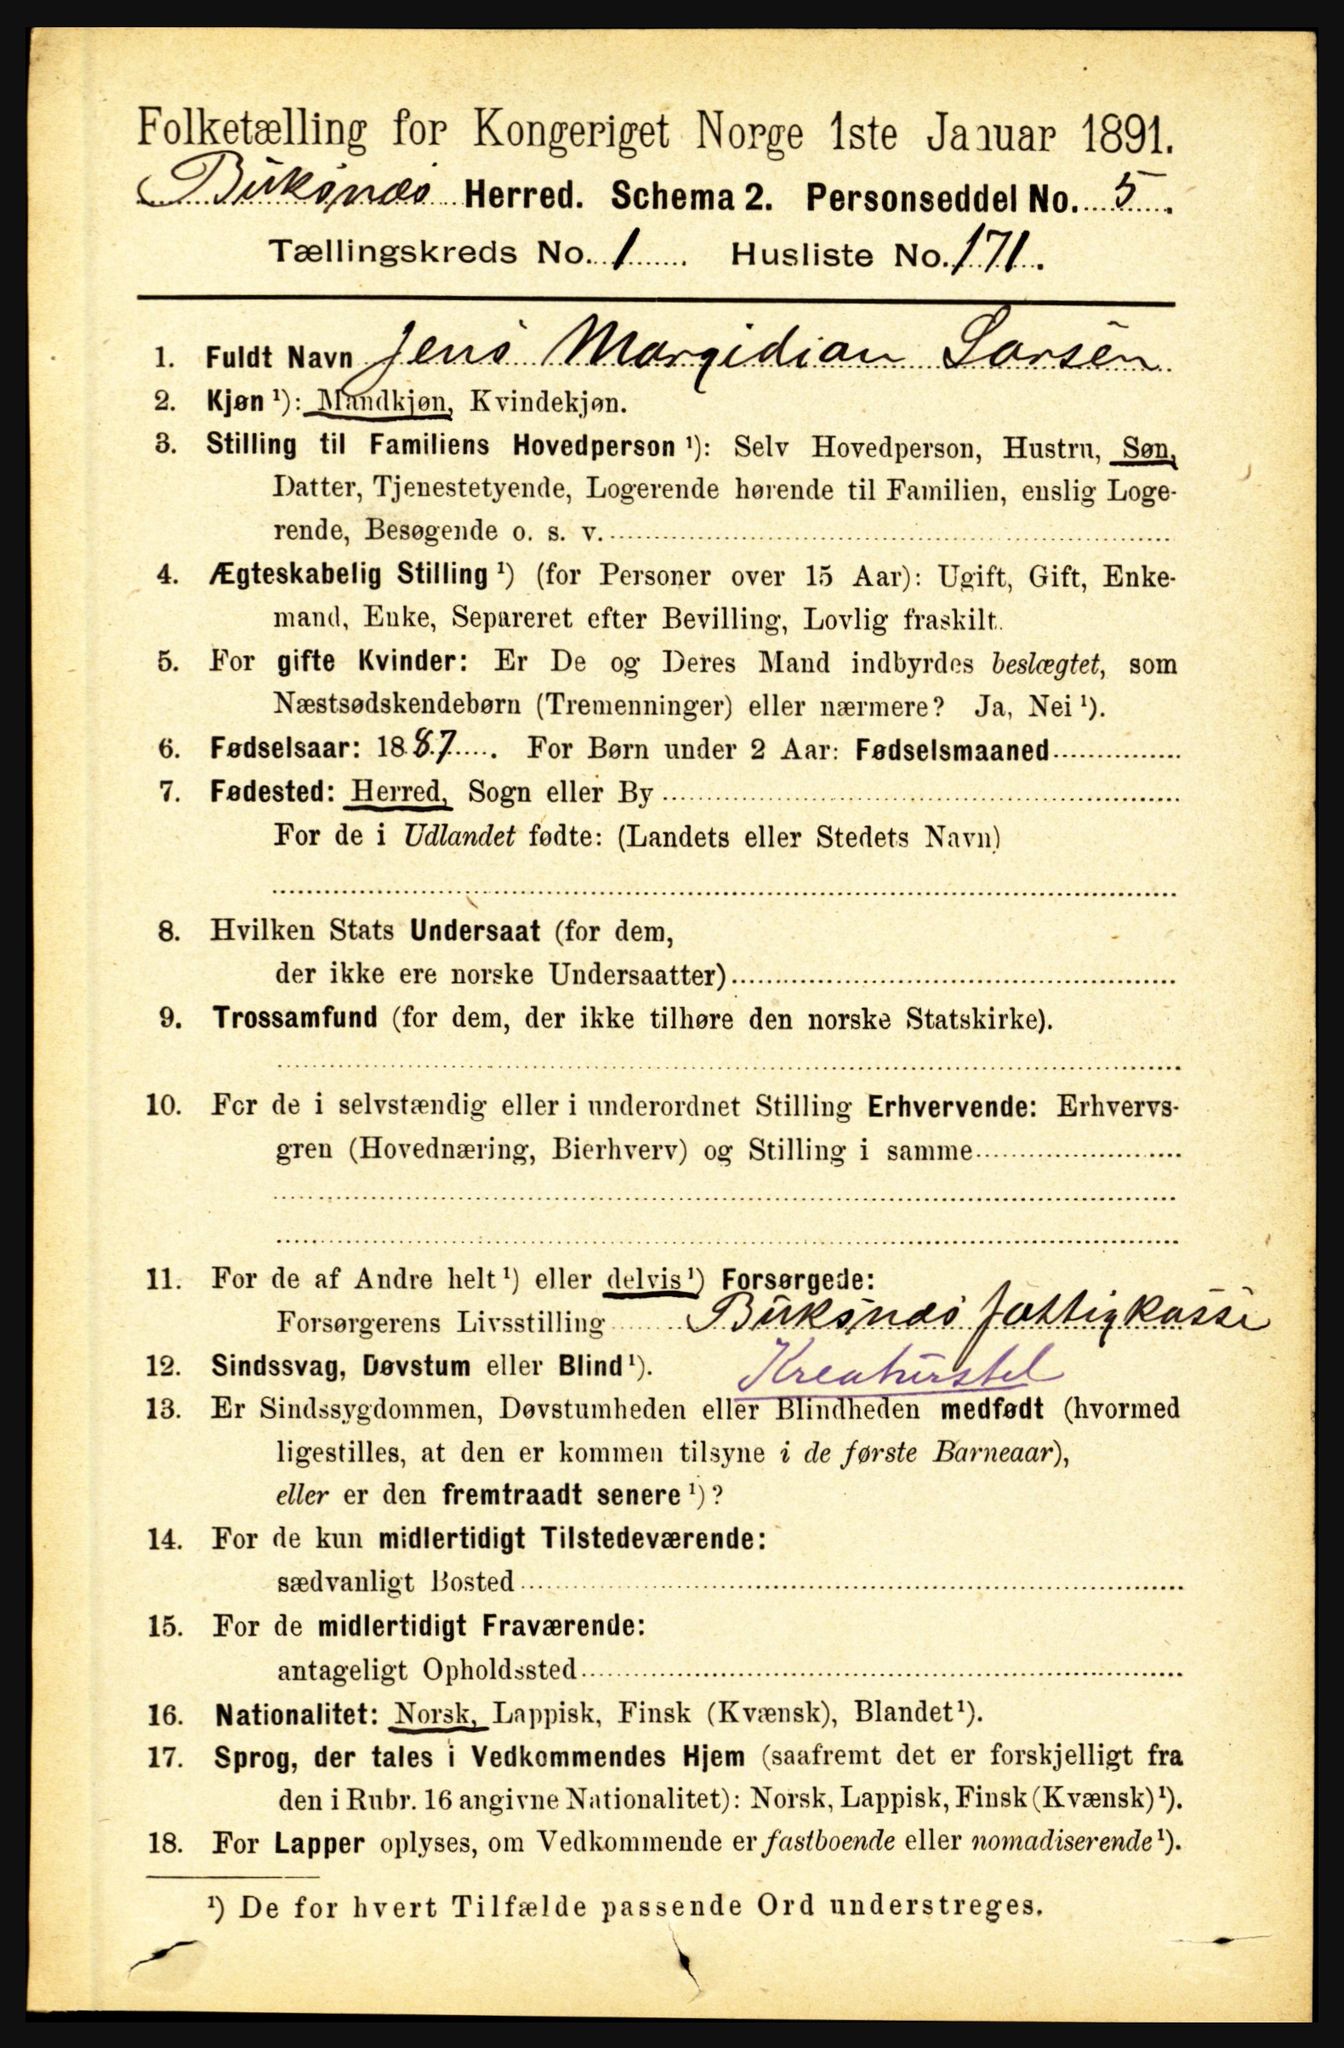 Folketælling for Kongeriget Norge 1ste Januar 1891.
Buksnæs Herred. Schema 2. Personseddel No. 5.
Tællingskreds No. 1 Husliste No. 171.
1. Fuldt Navn Jens Margidian Larsen
2. Kjøn ¹): Mandkjøn, Kvindekjøn.
3. Stilling til Familiens Hovedperson ¹): Selv Hovedperson, Hustru, Søn,
Datter, Tjenestetyende, Logerende hørende til Familien, enslig Loge-
rende, Besøgende o. s. v.
4. Ægteskabelig Stilling ¹) (for Personer over 15 Aar): Ugift, Gift, Enke-
mand, Enke, Separeret efter Bevilling, Lovlig fraskilt.
5. For gifte Kvinder: Er De og Deres Mand indbyrdes beslægtet, som
Næstsødskendebørn (Tremenninger) eller nærmere? Ja, Nei ¹).
6. Fødselsaar: 1887. For Børn under 2 Aar: Fødselsmaaned
7. Fødested: Herred, Sogn eller By
For de i Udlandet fødte: (Landets eller Stedets Navn)
8. Hvilken Stats Undersaat (for dem,
der ikke ere norske Undersaatter)
9. Trossamfund (for dem, der ikke tilhøre den norske Statskirke).
10. For de i selvstændig eller i underordnet Stilling Erhvervende: Erhvervs-
gren (Hovednæring, Bierhverv) og Stilling i samme
11. For de af Andre helt ¹) eller delvis ¹) Forsørgede:
Forsørgerens Livsstilling Buksnæs fattigkasse
12. Sindssvag, Døvstum eller Blind ¹). Kreaturstel
13. Er Sindssygdommen, Døvstumheden eller Blindheden medfødt (hvormed
ligestilles, at den er kommen tilsyne i de første Barneaar),
eller er den fremtraadt senere ¹)?
14. For de kun midlertidigt Tilstedeværende:
sædvanligt Bosted
15. For de midlertidigt Fraværende:
antageligt Opholdssted
16. Nationalitet: Norsk, Lappisk, Finsk (Kvænsk), Blandet ¹).
17. Sprog, der tales i Vedkommendes Hjem (saafremt det er forskjelligt fra
den i Rubr. 16 angivne Nationalitet): Norsk, Lappisk, Finsk (Kvænsk) ¹).
18. For Lapper oplyses, om Vedkommende er fastboende eller nomadiserende ¹).
¹) De for hvert Tilfælde passende Ord understreges.